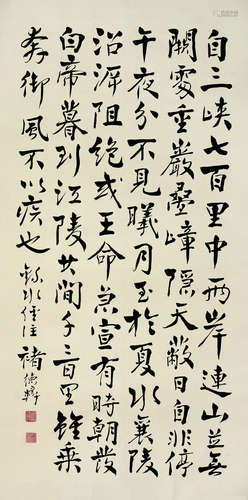 自三峡七百里中兩岸連山並無
闕處重巖疊嶂隱天蔽日自非停
午夜分不見曦月至於夏水襄陵
沿泝阻絶或王命急宣有時朝發
白帝暮到江陵其間千二百里雖乘
奔御風不以疾也 水經注 褚